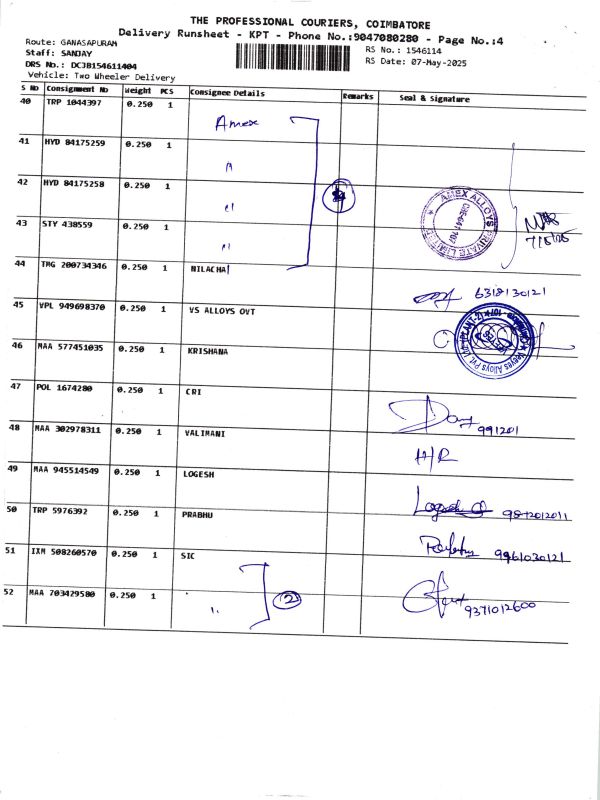 THE PROFESSIONAL COURIERS, COIMBATORE
Delivery Runsheet - KPT - Phone No.:9047080280 - Page No.:4
Route: GANASAPURAM
RS No.: 1546114
Staff: SANJAY
RS Date: 07-May-2025
DRS No.: DC3B154611404
Vehicle: Two Wheeler Delivery
S No Consignment No Weight PCS Consignee Details Remarks Seal & Signature
40 TRP 1044397 0.250 1 Amex
41 HYD 84175259 0.250 1 "
42 HYD 84175258 0.250 1 "
AMEX ALLOYS PRIVATE LIMITED
43 STY 438559 0.250 1 "
7/5/25
44 TMG 200734346 0.250 1 NILACHA
6318130121
45 VPL 949698370 0.250 1 VS ALLOYS OVT
46 MAA 577451035 0.250 1 KRISHANA
47 POL 1674280 0.250 1 CRI
991201
48 MAA 302978311 0.250 1 VALIMANI
H/R
49 MAA 945514549 0.250 1 LOGESH
50 TRP 5976392 0.250 1 PRABHU
9961030121
51 IXM 508260570 0.250 1 SIC
52 MAA 703429580 0.250 1 " 2
9371012600